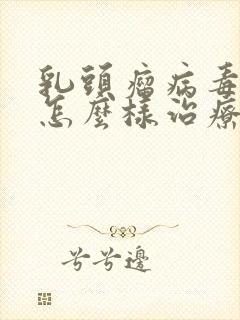 乳頭瘤病毒
怎麼樣治療
兮兮邊